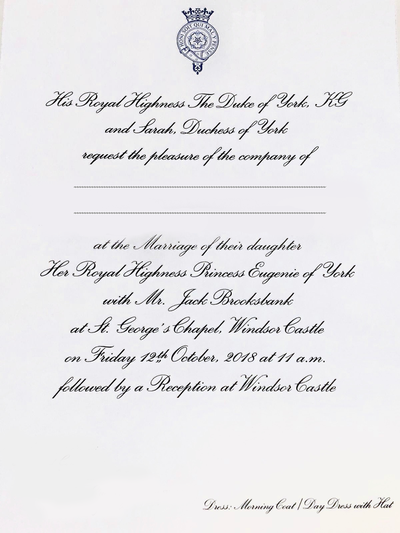 HONI SOIT QUI MAL Y PENSE
His Royal Highness The Duke of York, KG
and Sarah, Duchess of York
request the pleasure of the company of
at the Marriage of their daughter
Her Royal Highness Princess Eugenie of York
with Mr. Jack Brooksbank
at St. George's Chapel, Windsor Castle
on Friday 12th October, 2018 at 11 a.m.
followed by a Reception at Windsor Castle
Dress: Morning Coat / Day Dress with Hat